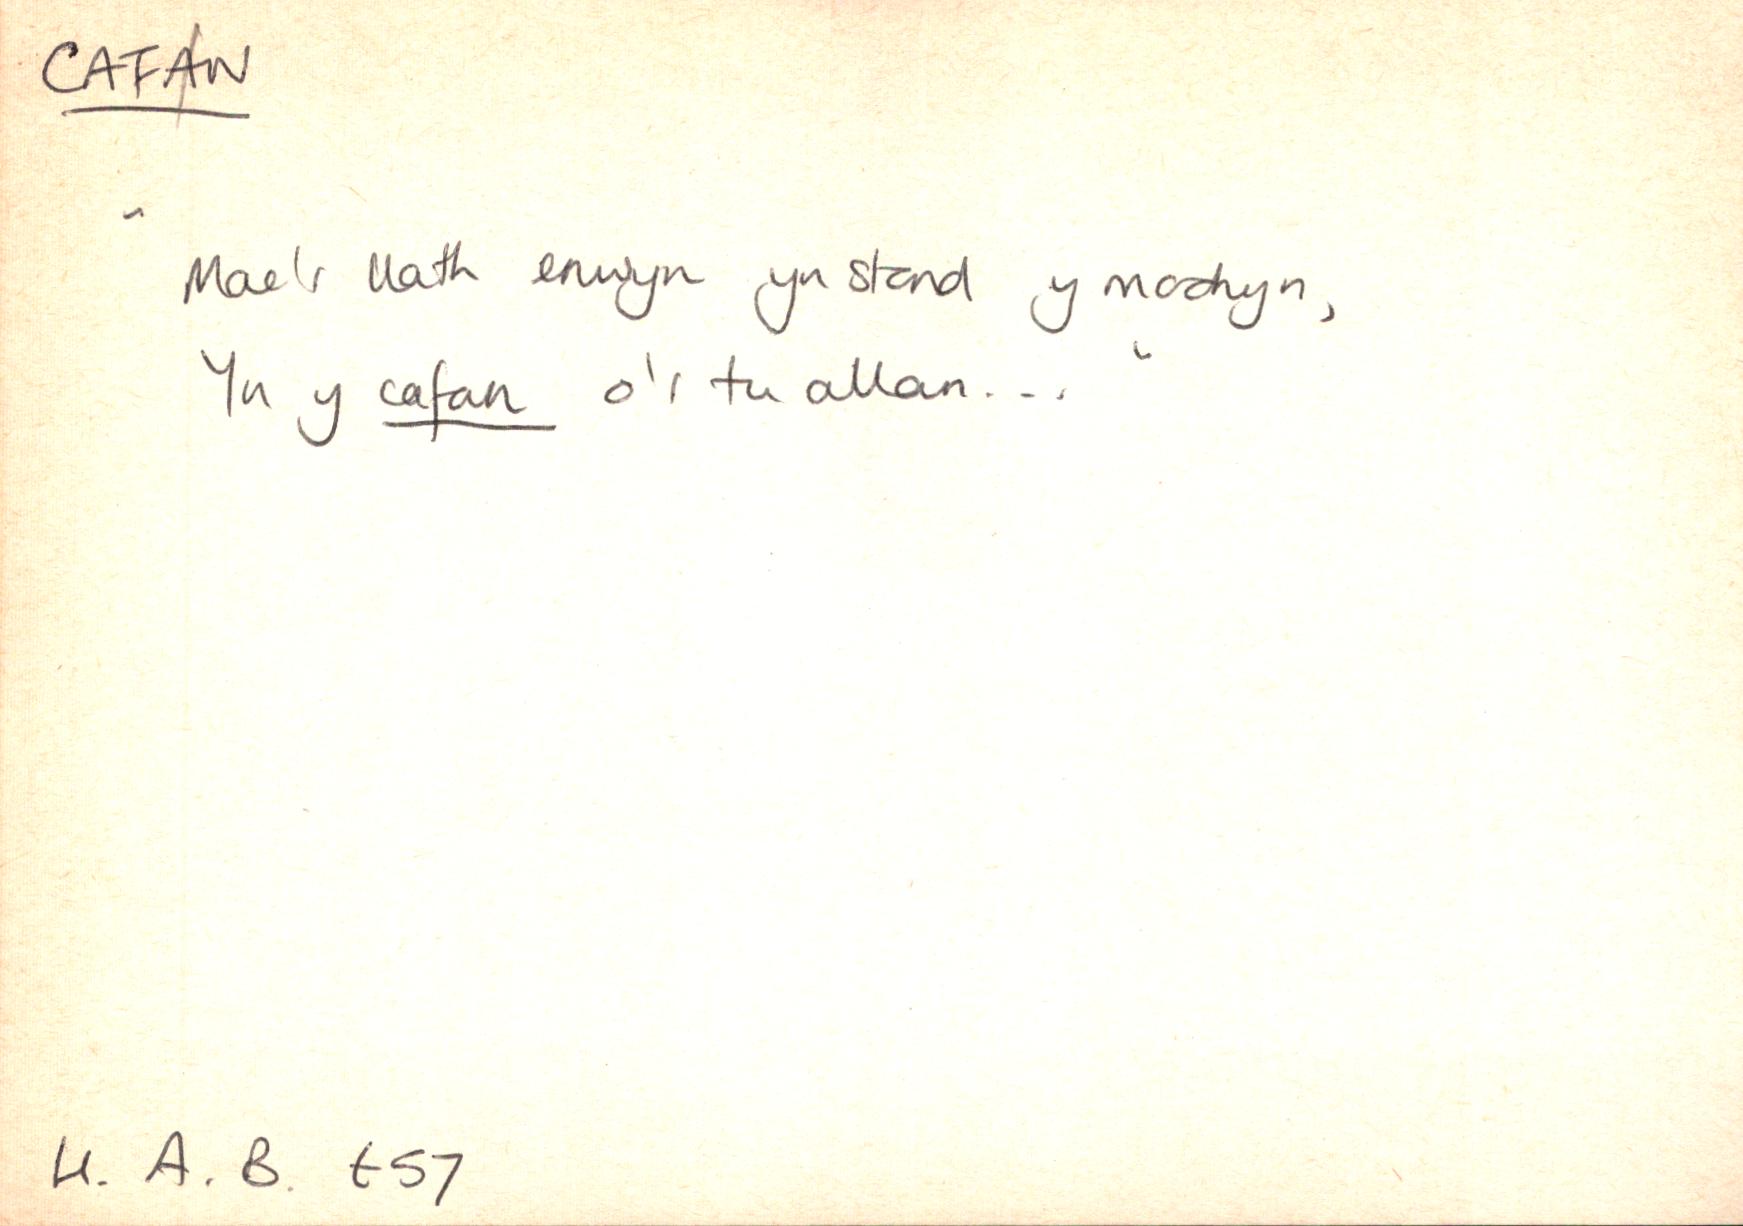 CAFAN
"
Mae'r llath enwyn yn stond y mochyn,
Yn y cafan o'r tu allan... "
Ll. A. B. t57